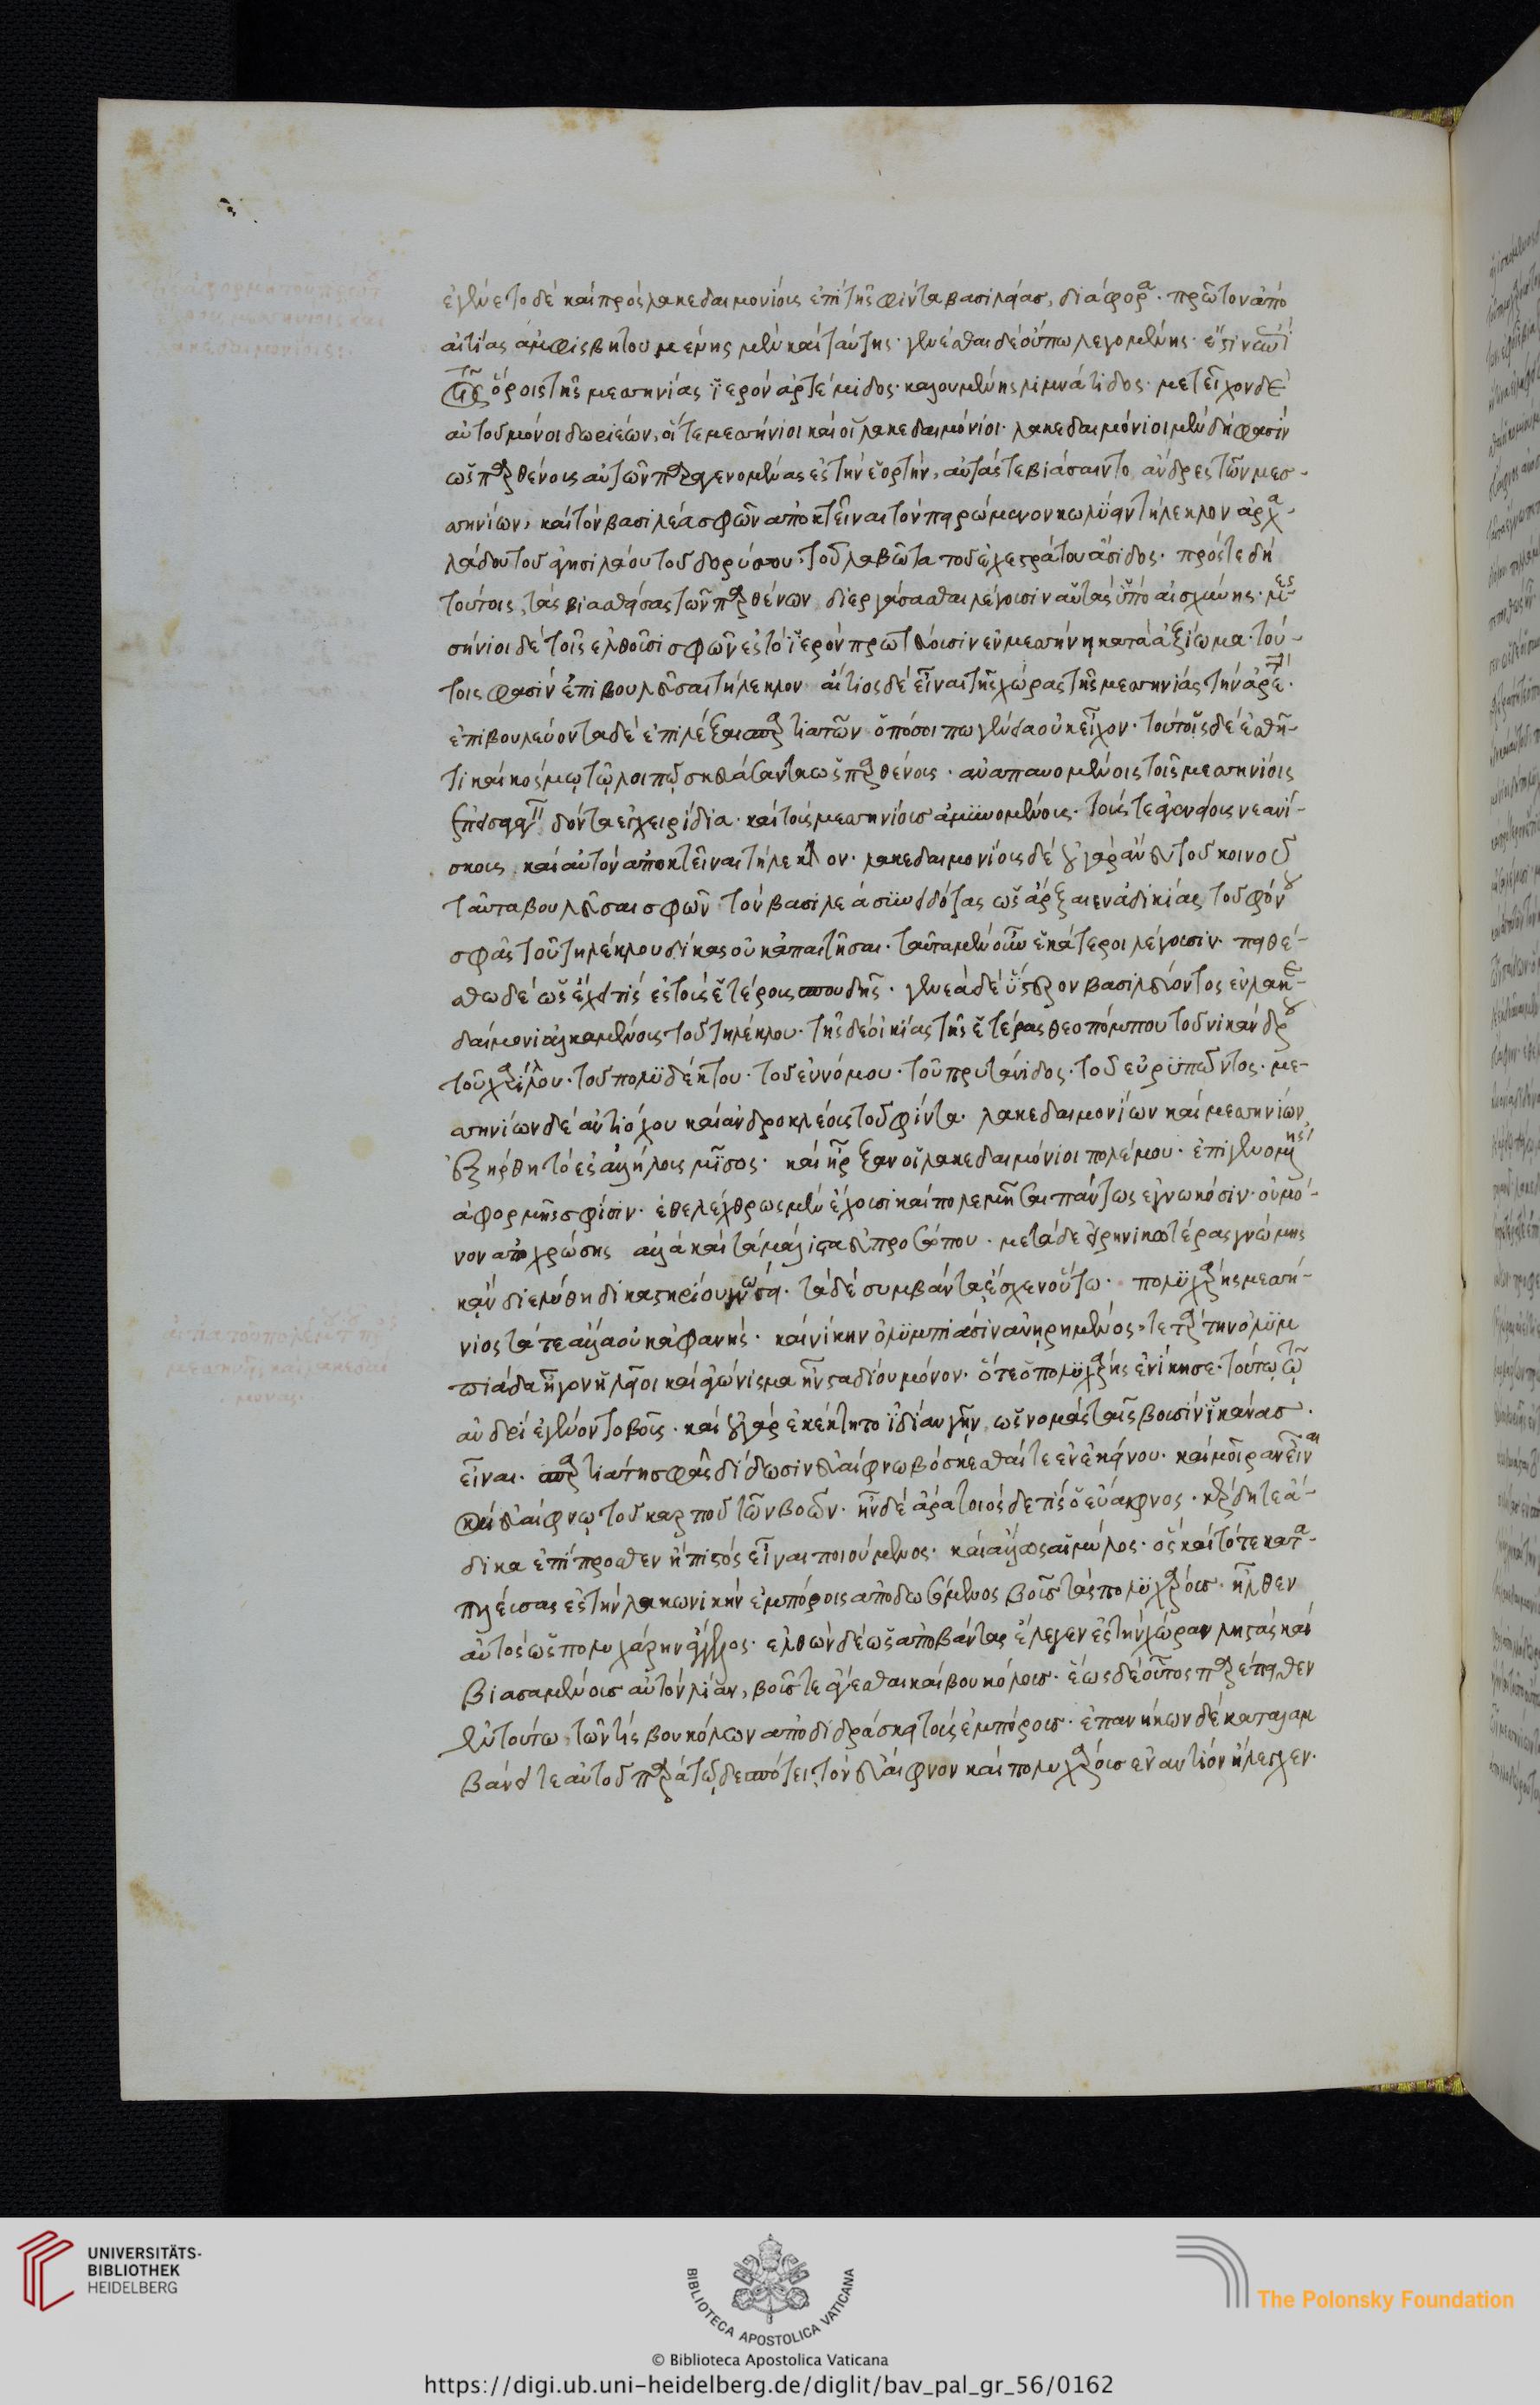 ἐγένετο δὲ καὶ πρὸς λακεδαιμονίοις ἐπὶ τῆς φίντα βασιλείας, διάφορα. πρῶτον ἀπὸ
αἰτίας ἀμφισβητουμένης μὲν καὶ ταύτης. γενέσθαι δὲ οὕτω λεγομένης. ἔστιν ἐπὶ
τοῖς ὅροις τῆς μεσσηνίας ἱερὸν ἀρτέμιδος. καλουμένης λιμνάτιδος. μετεῖχον δὲ
αὐτοῦ μόνοι δωριέων, οἵ τε μεσσήνιοι καὶ οἱ λακεδαιμόνιοι. λακεδαιμόνιοι μὲν δή φασιν
ὡς παρθένους αὐτῶν παραγενομένας ἐς τὴν ἑορτὴν, αὐτάς τε βιάσαιντο ἄνδρες τῶν μεσ-
σηνίων, καὶ τὸν βασιλέα σφῶν ἀποκτεῖναι τὸν πειρώμενον κωλύειν τήλεκλον ἀρχε-
λάου τοῦ ἀγησιλάου τοῦ δορύσσου. τοῦ λαβῶτα τοῦ ἐχεστράτου ἄσιδος. πρός τε δὴ
τούτοις, τὰς βιασθείσας τῶν παρθένων διεργάσασθαι λέγουσιν αὑτὰς ὑπὸ αἰσχύνης. μεσ-
σήνιοι δὲ τοῖς ἐλθοῦσι σφῶν ἐς τὸ ἱερὸν πρωτεύουσιν ἐν μεσσήνῃ κατὰ ἀξίωμα. τού-
τοις φασὶν ἐπιβουλεῦσαι τήλεκλον αἴτιος δὲ εἶναι τῆς χώρας τῆς μεσσηνίας τὴν ἀρετήν.
ἐπιβουλεύοντα δὲ ἐπιλέξαι σπαρτιατῶν ὁπόσοι πω γένεια οὐκ εἶχον. τούτους δὲ ἐσθῆ-
τι καὶ κόσμῳ τῷ λοιπῷ σκευάσαντα ὡς παρθένους. ἀναπαυομένοις τοῖς μεσσηνίοις
ἐπεισαγαγεῖν δόντα ἐγχειρίδια. καὶ τοὺς μεσσηνίους ἀμυνομένους. τούς τε ἀγενείους νεανί-
σκους καὶ αὐτὸν ἀποκτεῖναι τήλεκλον. λακεδαιμονίους δὲ οὐ γὰρ ἄνευ τοῦ κοινοῦ
ταῦτα βουλεῦσαι σφῶν τὸν βασιλέα συνειδότας ὡς ἄρξαιεν ἀδικίας τοῦ φόνου
σφᾶς τοῦ τηλέκλου δίκας οὐκ ἀπαιτῆσαι. ταῦτα μὲν οὖν ἑκάτεροι λέγουσιν. πειθέ-
σθω δὲ ὡς ἔχει τις ἐς τοὺς ἑτέρους σπουδῆς. γενεᾷ δὲ ὕστερον βασιλεύοντος ἐν λακε-
δαίμονι ἀλκαμένους τοῦ τηλέκλου. τῆς δὲ οἰκίας τῆς ἑτέρας θεοπόμπου τοῦ νικάνδρου
τοῦ χαρίλλου. τοῦ πολυδέκτου. τοῦ εὐνόμου. τοῦ πρυτάνιδος. τοῦ εὐρυπῶντος. με-
σσηνίων δὲ ἀντιόχου καὶ ἀνδροκλέους τοῦ φίντα. λακεδαιμονίων καὶ μεσσηνίων
ἐξήρθη τὸ ἐς ἀλλήλους μῖσος. καὶ ἦρξαν οἱ λακεδαιμόνιοι πολέμου. ἐπιγενομένης
ἀφορμῆς σφίσιν. ἐθελέχθρως μὲν ἔχουσι καὶ πολεμῆσαι πάντως ἐγνωκόσιν. οὐ μό-
νον ἀποχρώσης ἀλλὰ καὶ τὰ μάλιστα εὐπροσώπου. μετὰ δὲ εἰρηνικωτέρας γνώμης
κἂν διελύθη δικαστηρίου γνώσει. τὰ δὲ συμβάντα ἔσχεν οὕτω. πολυχάρης μεσσή-
νιος τά τε ἄλλα οὐκ ἀφανὴς. καὶ νίκην ὀλυμπίασιν ἀνῃρημένος. τετάρτην ὀλυμ
πιάδα ἦγον ἠλεῖοι καὶ ἀγώνισμα ἦν σταδίου μόνον. ὅτε ὁ πολυχάρης ἐνίκησε. τούτῳ τῷ
ἀνδρὶ ἐγένοντο βοῦς. καὶ οὐ γὰρ ἐκέκτητο ἰδίαν γῆν, ὡς νομάς ταῖς βουσὶν ἱκανὰς
εἶναι. σπαρτιάτῃ σφᾶς δίδωσιν εὐαίφνῳ βόσκεσθαί τε ἐν ἐκείνου. καὶ μοῖραν εἶναι
καὶ εὐαίφνῳ τοῦ καρποῦ τῶν βοῶν. ἦν δὲ ἄρα τοιόσδε τις ὁ εὔαιφνος. κέρδη τε ἄ-
δικα ἐπίπροσθεν ἢ πιστὸς εἶναι ποιούμενος. καὶ ἄλλως αἱμύλος. ὃς καὶ τότε κατα-
πλεύσας ἐς τὴν λακωνικὴν ἐμπόροις ἀποδόμενος βοῦς τὰς πολυχάρους. ἦλθεν
αὐτὸς ὡς πολυχάρην ἄγγελος. ἐλθὼν δὲ ὡς ἀποβάντας ἔλεγεν ἐς τὴν χώραν λῃστὰς καὶ
βιασαμένους αὐτὸν λίαν, βοῦς τε ἄγεσθαι καὶ βουκόλους. ἕως δὲ οὗτος παρέπειθεν
ἐν τούτῳ, τῶν τις βουκόλων ἀποδιδράσκει τοὺς ἐμπόρους. ἐπανήκων δὲ καταλαμ
βάνει τε αὐτοῦ παρὰ τῷ δεσπότῃ τὸν εὔαιφνον καὶ πολυχάρους ἐναντίον ἤλεγχεν.
UNIVERSITÄTS-
BIBLIOTHEK
HEIDELBERG
BIBLIOTECA APOSTOLICA VATICANA
The Polonsky Foundation
© Biblioteca Apostolica Vaticana
https://digi.ub.uni-heidelberg.de/diglit/bav_pal_gr_56/0162